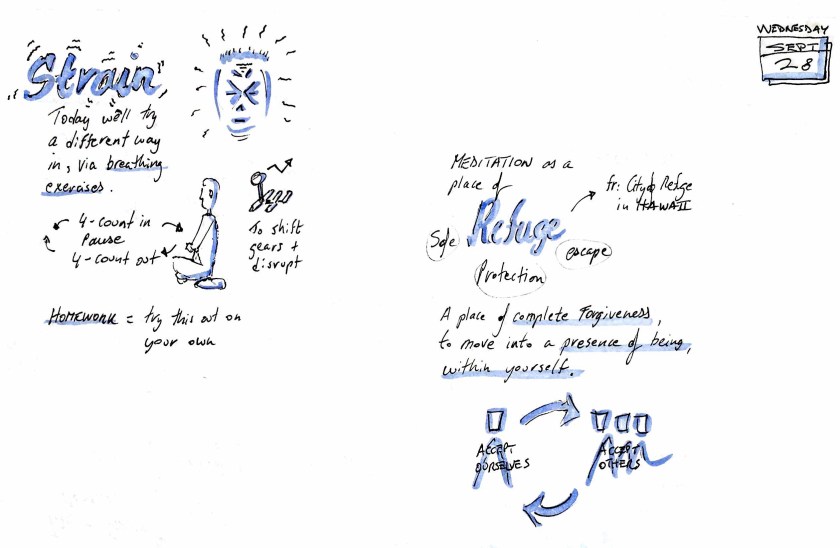 WEDNESDAY
SEPT
28
Strain
Today we'll try
a different way
in, via breathing
exercises.
4-count in
Pause
4-count out
To shift
gears +
disrupt
HOMEWORK = try this out on
your own
MEDITATION as a
place of
Refuge
fr: City of Refge
in HAWAII
Safe
Protection
escape
A place of complete Forgiveness,
to move into a presence of being,
within yourself.
ACCEPT
OURSELVES
ACCEPT
OTHERS